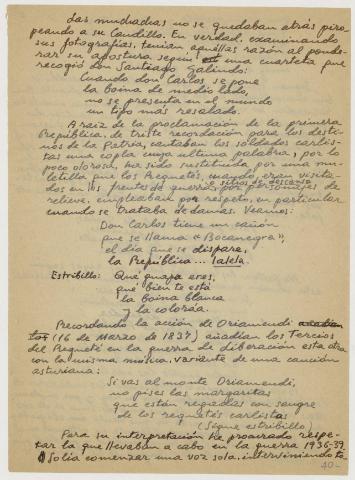 Las muchachas no se quedaban atrás piro
peando a su Caudillo. En verdad, examinando
sus fotografías, tenían aquéllas razón al ponde-
rar su apostura según una cuarteta que
recogió don Santiago Galindo:
Cuando don Carlos se pone
la boina de medio lado,
no se presenta en el mundo
un tipo más resalado.
A raíz de la proclamación de la primera
República, de triste recordación para los desti-
nos de la Patria, cantaban los soldados carlis-
tas una copla cuya última palabra, por lo
poco olorosa, ha sido sustituida por una mu-
letilla que los Requetés, cuando eran visita-
dos en los frentes de guerra o sitios de descanso por personajes de
relieve, empleaban por respeto, en particular
cuando se trataba de damas. Veamos:
Don Carlos tiene un cañón
que se llama «Bocanegra»,
el día que se dispare,
la República... lalela.
Estribillo: Qué guapa eres,
qué bien te está
la boina blanca
y la coloráa.
Recordando la acción de Oriamendi
(16 de Marzo de 1837) añadían los Tercios
del Requeté en la guerra de liberación esta otra
con la misma música, variante de una canción
asturiana:
Si vas al monte Oriamendi,
no pises las margaritas
que están regadas con sangre
de los requetés carlistas
(Sigue estribillo)
Para su interpretación he procurado respe-
tar la que llevaban a cabo en la guerra 1936-39.
Solía comenzar una voz sola, interviniendo to-
40-